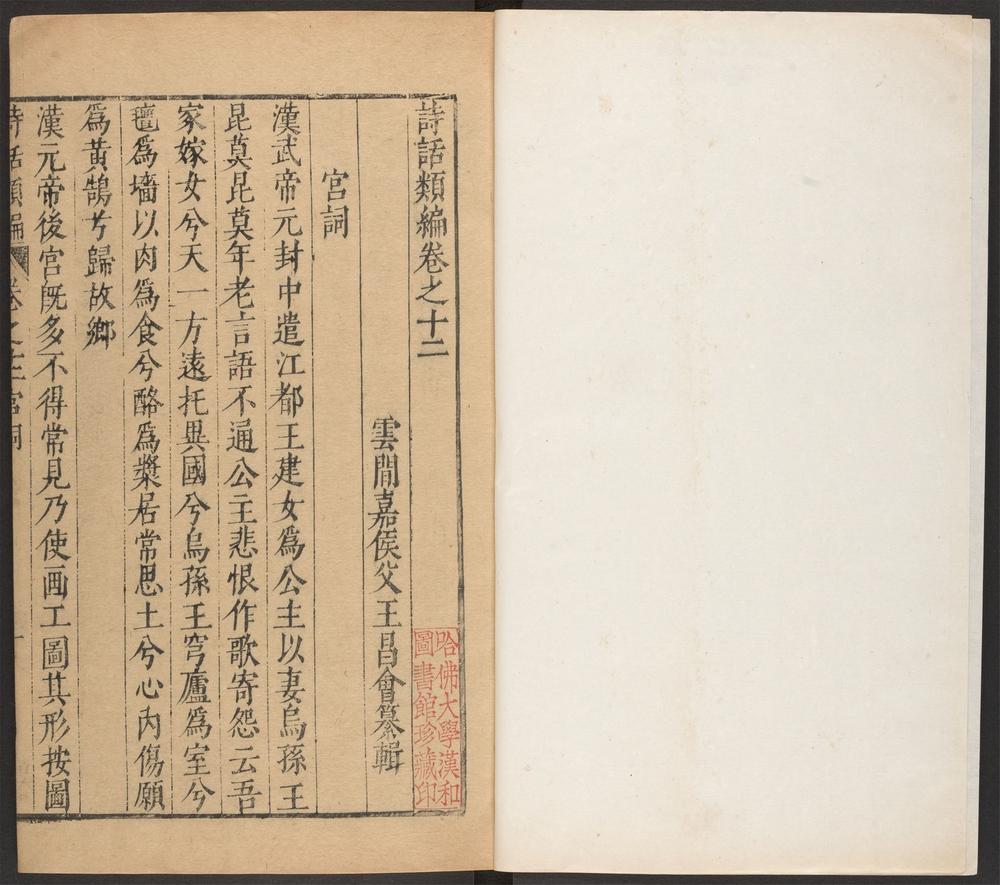 詩話類編卷之十二
雲間嘉侯父王昌會纂輯
宮詞
漢武帝元封中遣江都王建女爲公主以妻烏孫王
昆莫昆莫年老言語不通公主悲恨作歌寄怨云吾
家嫁女兮天一方遠托異國兮烏孫王穹廬爲室兮
氊爲墻以肉爲食兮酪爲漿居常思土兮心內傷願
爲黃鵠兮歸故鄉
漢元帝後宮旣多不得常見乃使画工圖其形按圖
詩話類編 卷之十二宮詞
哈佛大學漢和
圖書館珍藏印